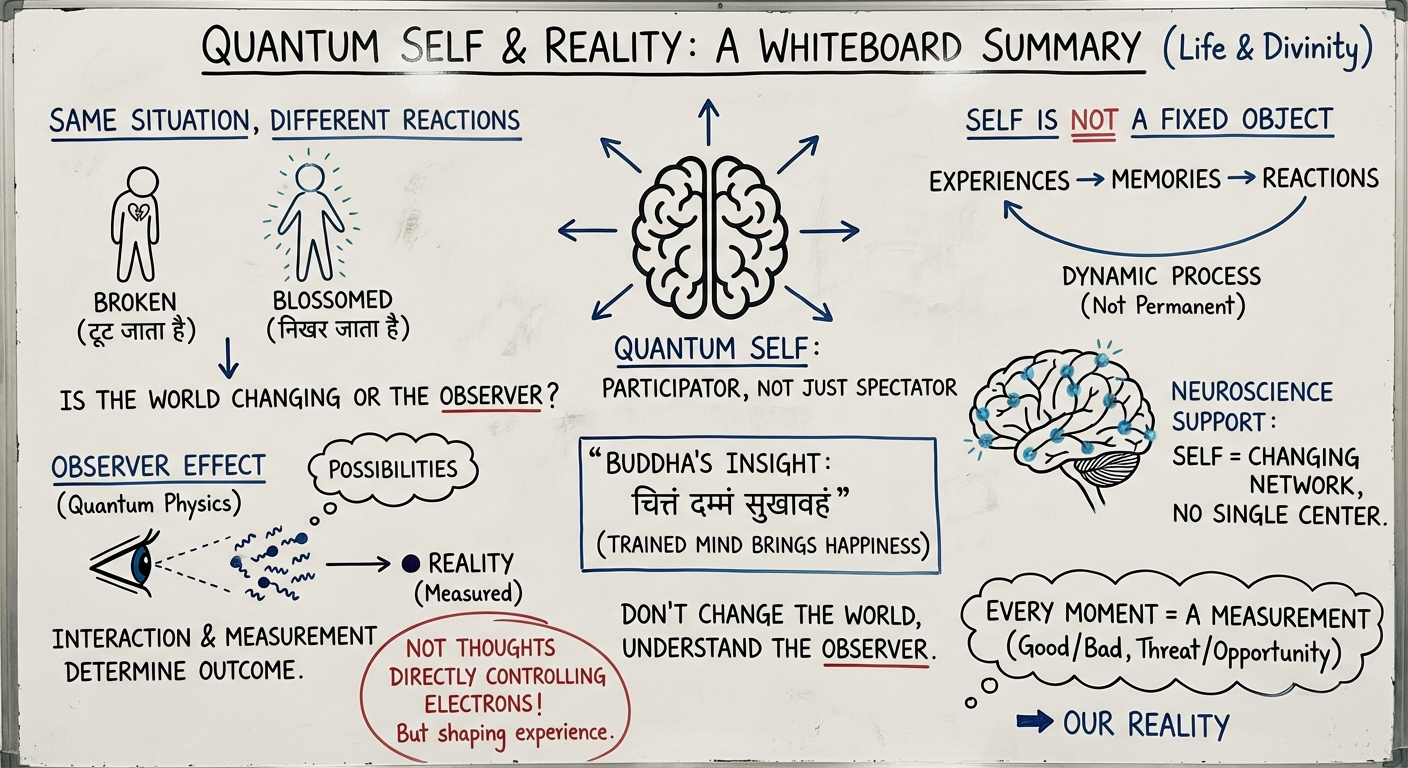 QUANTUM SELF & REALITY: A WHITEBOARD SUMMARY (Life & Divinity)
SAME SITUATION, DIFFERENT REACTIONS
BROKEN
(टूट जाता है)
BLOSSOMED
(निखर जाता है)
IS THE WORLD CHANGING OR THE OBSERVER?
OBSERVER EFFECT
(Quantum Physics)
POSSIBILITIES
REALITY
(Measured)
INTERACTION & MEASUREMENT
DETERMINE OUTCOME.
NOT THOUGHTS
DIRECTLY CONTROLLING
ELECTRONS!
But shaping experience.
QUANTUM SELF:
PARTICIPATOR, NOT JUST SPECTATOR
"BUDDHA'S INSIGHT:
चित्तं दम्मं सुखावहं"
(TRAINED MIND BRINGS HAPPINESS)
DON'T CHANGE THE WORLD,
UNDERSTAND THE OBSERVER.
SELF IS NOT A FIXED OBJECT
EXPERIENCES → MEMORIES → REACTIONS
DYNAMIC PROCESS
(Not Permanent)
NEUROSCIENCE
SUPPORT:
SELF = CHANGING
NETWORK,
NO SINGLE CENTER.
EVERY MOMENT = A MEASUREMENT
(Good/Bad, Threat/Opportunity)
➡ OUR REALITY